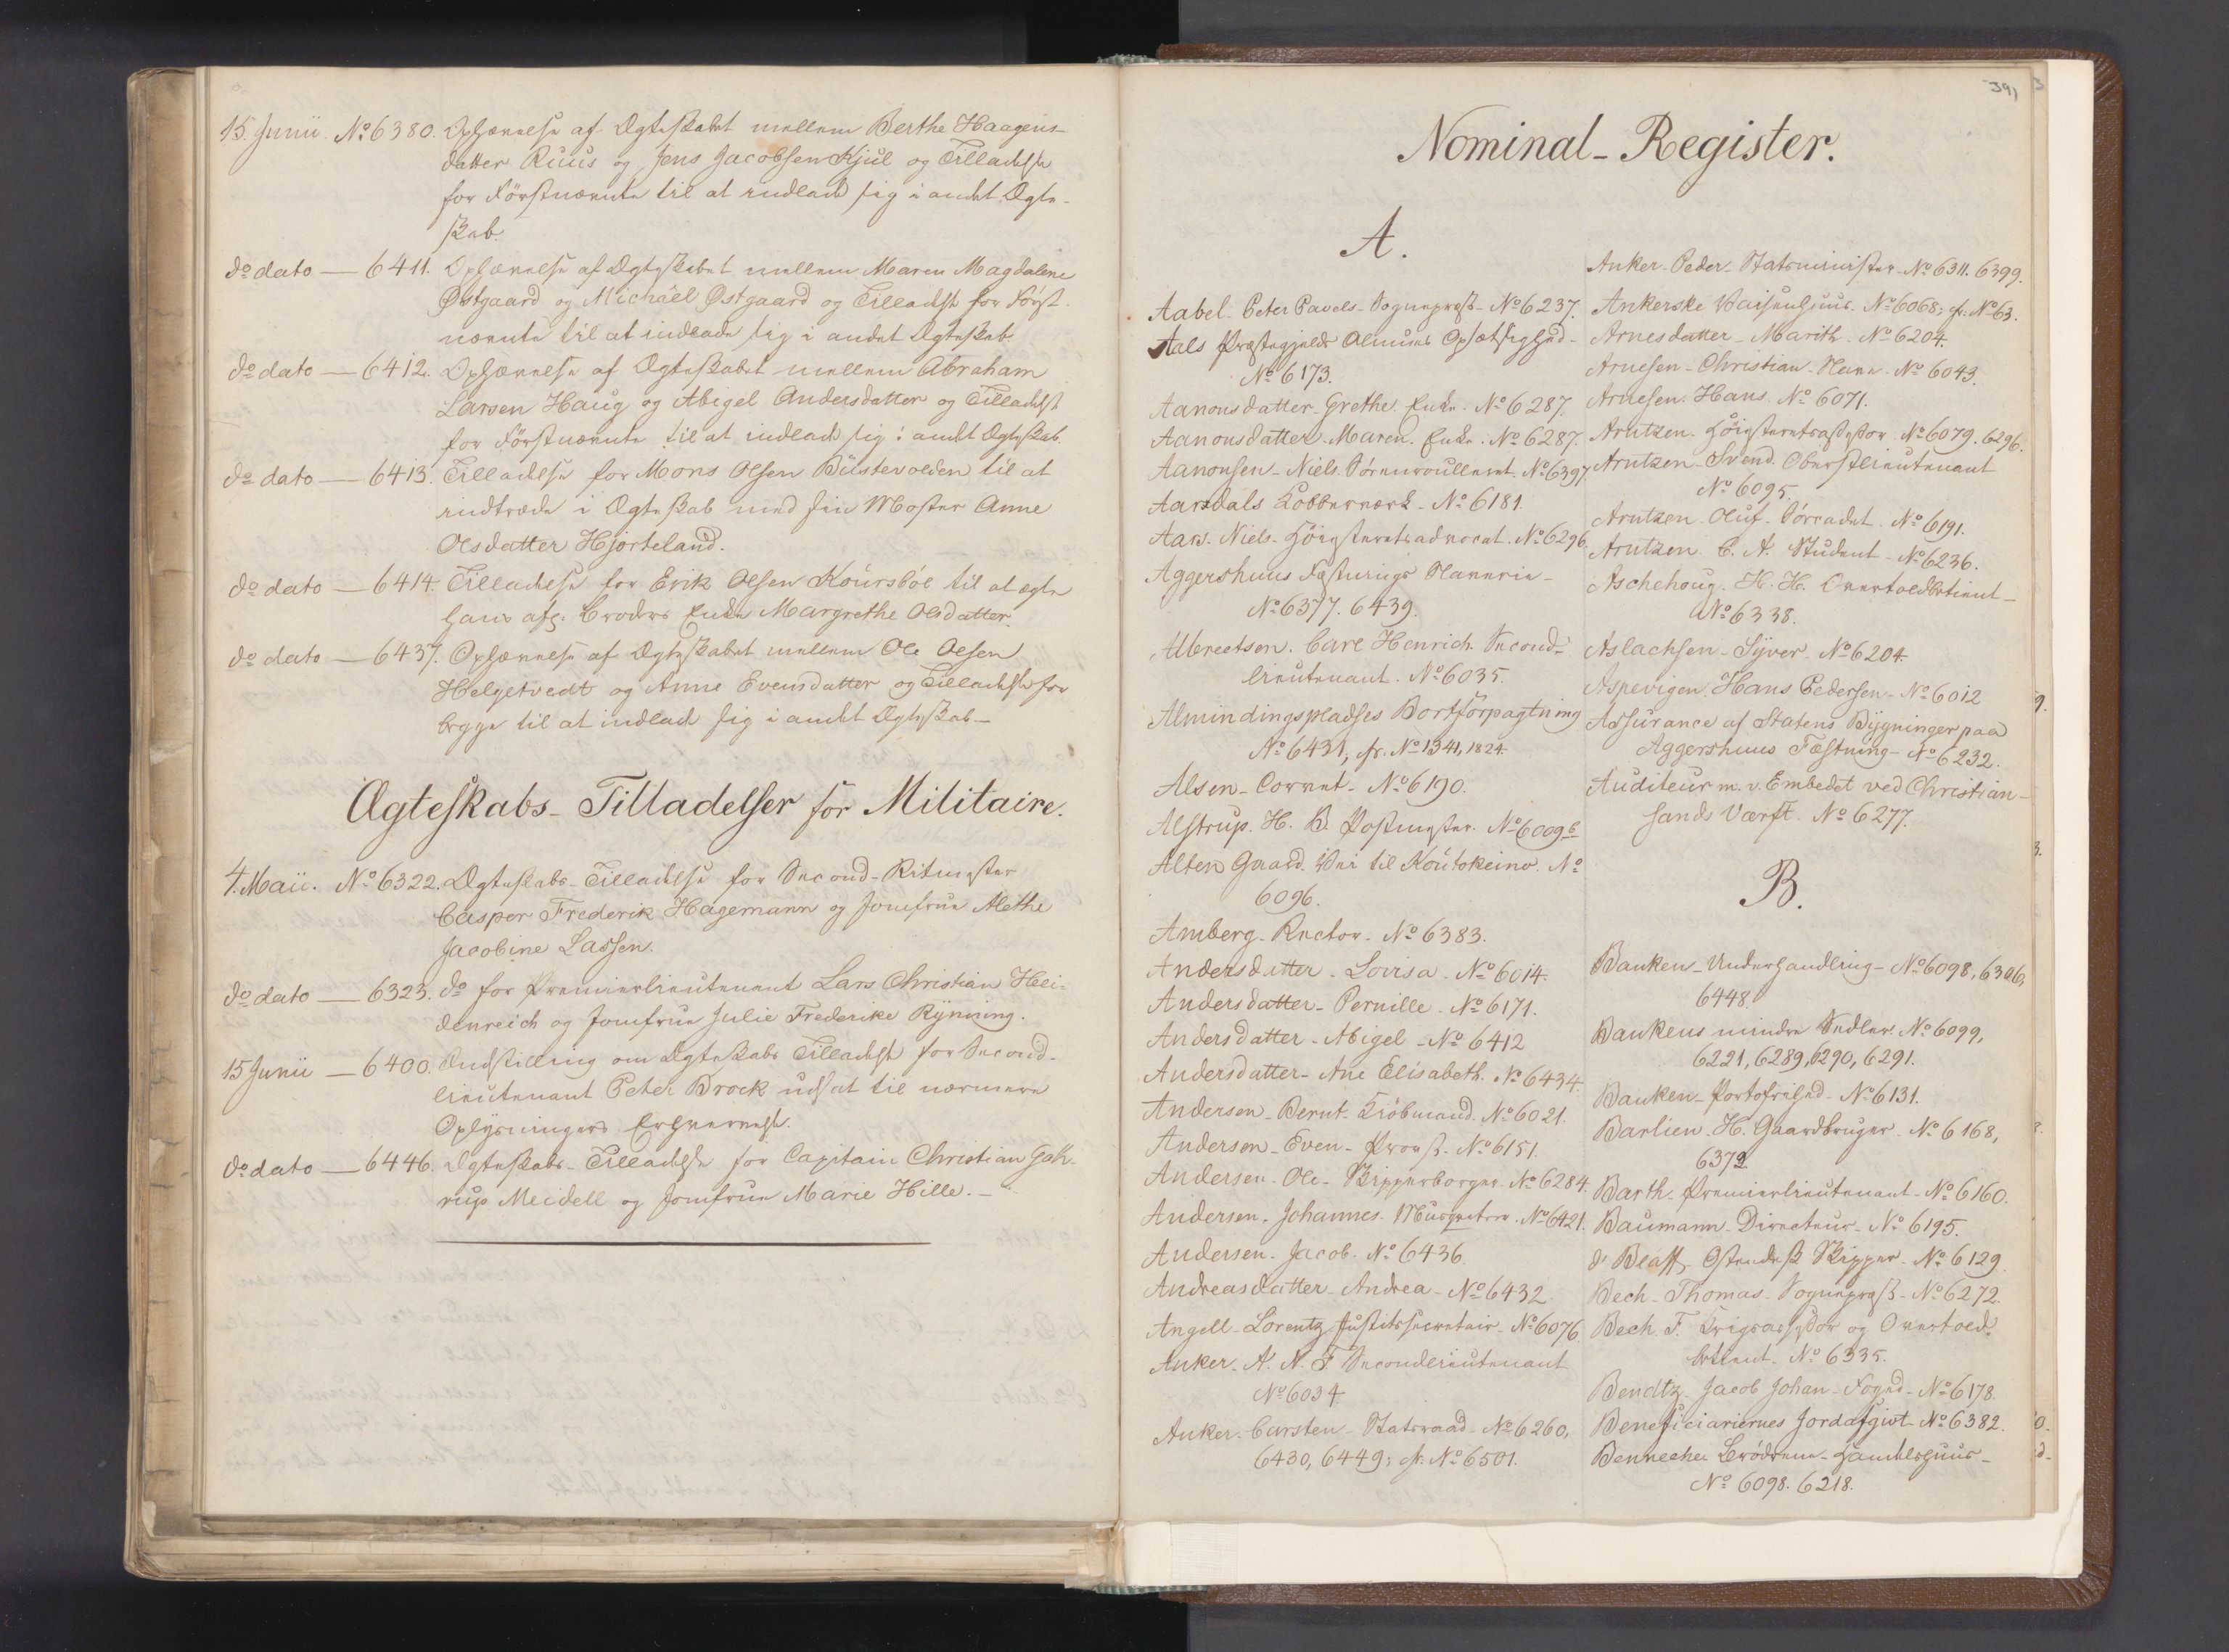 15. Junii. No 6380. Ophævelse af Ægteskabet mellem Berthe Haagens-
datter Ruus og Jens Jacobsen Kjul og Tilladelse
for Förstnævnte til at indlade sig i andet Ægte-
skab.
do dato — 6411. Ophævelse af Ægteskabet mellem Maren Magdalene
Østgaard og Michäel Østgaard og Tilladelse for Först-
nævnte til at indlade sig i andet Ægteskab.
do dato — 6412. Ophævelse af Ægteskabet mellem Abraham
Larsen Haug og Abigel Andersdatter og Tilladelse
for Förstnævnte til at indlade sig i andet Ægteskab.
do dato — 6413. Tilladelse for Mons Olsen Büstevolden til at
indtræde i Ægteskab med sin Moster Anne
Olsdatter Hjorteland.
do dato — 6414. Tilladelse for Erik Olsen Koursböe til at ægte
hans afg. Broders Enke Margrethe Olsdatter.
do dato — 6437. Ophævelse af Ægteskabet mellem Ole Olsen
Helgetvedt og Anne Evensdatter og Tilladelse for
begge til at indlade sig i andet Ægteskab —
Ægteskabs-Tilladelser för Militaire.
4. Maii. No 6322. Ægteskabs-Tilladelse for Second-Ritmester
Casper Frederik Hagemann og Jomfrue Alethe
Jacobine Lassen.
do dato — 6323. do for Premierlieutenant Lars Christian Hei-
denreich og Jomfrue Julie Frederike Rÿnning.
15 Junii — 6400. Indstilling om Ægteskabs Tilladelse for Second-
lieutenant Peter Brock udsat til nærmere
Oplysningers Erhvervelse.
do dato — 6446. Ægteskabs-Tilladelse for Capitain Christian Gah-
rup Meidell og Jomfrue Marie Hille. —
391
Nominal-Register.
A.
Aabel. Peter Pavels. Sogneprest. No 6237.
Aals Præstegjelds Almues Opsætsighed-
No 6173.
Aanonsdatter. Grethe. Enke. No 6287.
Aanonsdatter. Maren. Enke. No 6287.
Aanonsen. Niels. Sörenroulleret. No 6397.
Aarsdals Kobberværk. No 6181.
Aars. Niels. Höiesteretsadvocat. No 6296.
Aggershuus Fæstnings Slaverie-
No 6377. 6439.
Albrectsen. Carl Henrich. Second-
lieutenant. No 6035.
Almindingspladses Bortforpagtning
No 6431, cfr. No 1341, 1824.
Alsen- Cornet- No 6190.
Alstrup. H. B. Postmester. No 6009 b
Alten Gaard. Vei til Koutokeino. No
6096.
Amberg. Rector. No 6383.
Andersdatter. Lovisa. No 6014.
Andersdatter. Pernille. No 6171.
Andersdatter. Abigel. No 6412
Andersdatter. Ane Elisabeth. No 6434.
Andersen. Bernt. Kiöbmand. No 6021.
Andersen. Even. Provst. No 6151.
Andersen. Ole. Skipperborger. No 6284.
Andersen. Johannes. Musqueteer. No 6421.
Andersen. Jacob. No 6436
Andreasdatter. Andrea. No 6432.
Angell. Lorentz. Justitssecretair. No 6076.
Anker. A. N. F. Secondlieutenant
No 6034
Anker. Carsten. Statsraad. No 6260,
6430, 6449; cfr. No 6501.
Anker. Peder. Statsminister. No 6311. 6399.
Ankerske Vaisenhuus. No 6068; cfr. No 63.
Arnesdatter. Marith. No 6204.
Arnesen. Christian. Slave. No 6043.
Arnesen. Hans. No 6071.
Arntzen. Höiesteretsassessor. No 6079. 6296.
Arntzen. Svend. Oberstlieutenant
No 6095.
Arntzen. Oluf. Söecadet. No 6191.
Arntzen. C. A. Student. No 6236.
Aschehoug. H. H. Overtoldbetient-
No 6338.
Aslachsen. Syver. No 6204.
Aspevigen. Hans Pedersen. No 6012
Assurance af Statens Bygninger paa
Aggershuus Fæstning. No 6232.
Auditeur m. v. Embedet ved Christian-
sands Værft. No 6277.
B.
Banken. Underhandling. No 6098, 6306,
6448.
Bankens mindre Sedler. No 6099,
6221, 6289, 6290, 6291.
Banken. Portofrihed. No 6131.
Barlien. H. Gaardbruger. No 6168,
6372
Barth. Premierlieutenant. No 6160.
Baumann. Directeur. No 6195.
d' Beafs. Ostendesk Skipper. No 6129.
Bech. Thomas. Sogneprest. No 6272.
Bech. F. Krigsassessor og Overtold-
betient. No 6335.
Bendtz. Jacob Johan. Foged. No 6178.
Beneficiariernes Jordafgivt. No 6382.
Bennechee Brödrene. Handelshuus-
No 6098. 6218.